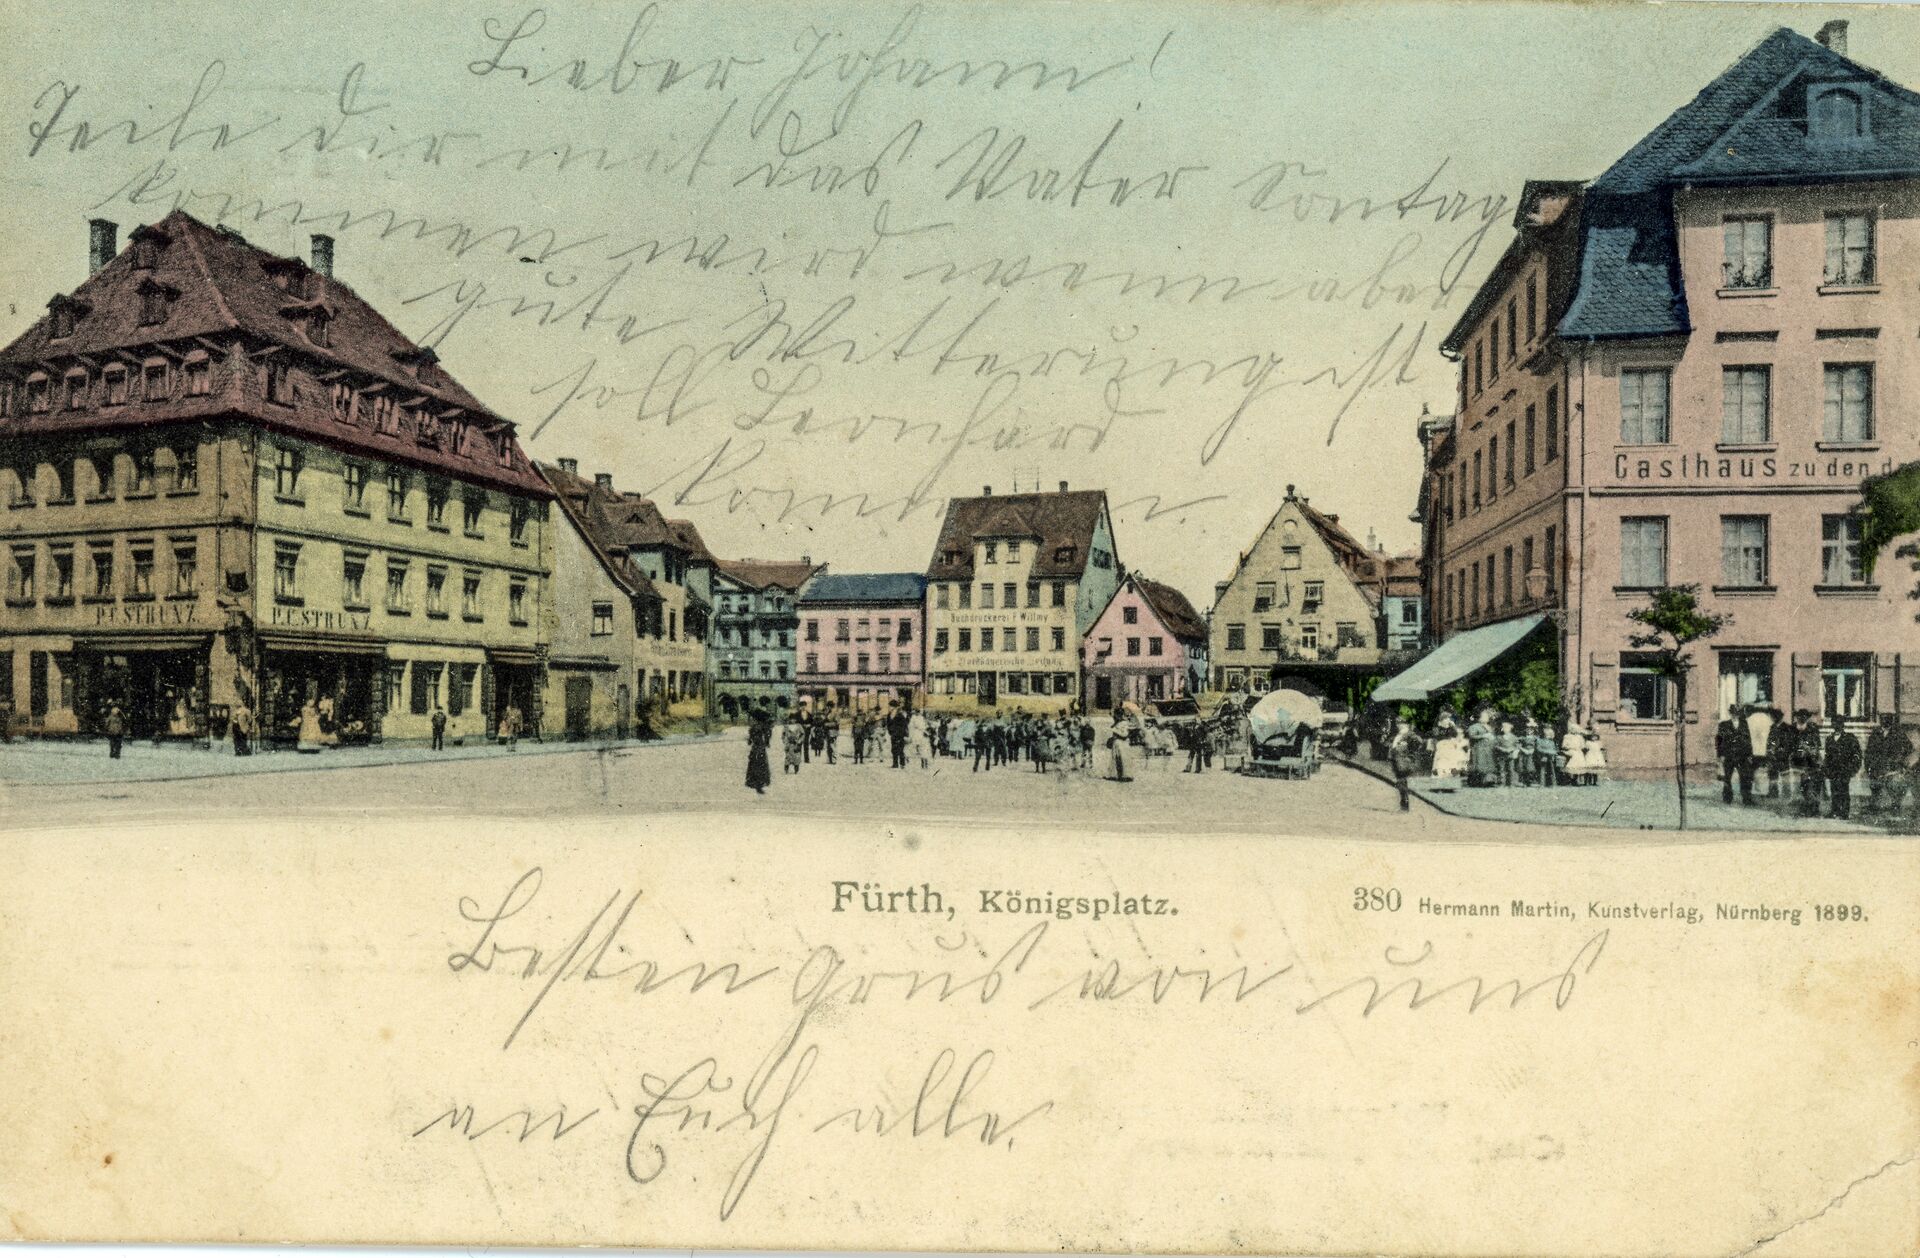 Lieber Johann!
Teile dir mit das Vater Sontag
kommen wird wenn aber
gute Witterung ist
soll Leonhard
kommen.
Gasthaus zu den
P. C. STRUNZ.
P. C. STRUNZ
Buchdruckerei F. Willmy
Nordbayerische Zeitung
Fürth, Königsplatz.
380 Hermann Martin, Kunstverlag, Nürnberg 1899.
Besten Grus von uns
an Euch alle.